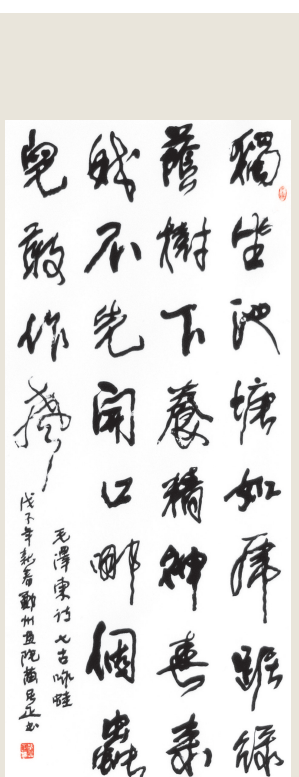 獨坐池塘如虎踞綠
蔭樹下養精神春來
我不先開口哪個蟲
兒敢作聲
毛澤東诗七古咏蛙
戊子年新春鄭州画院书